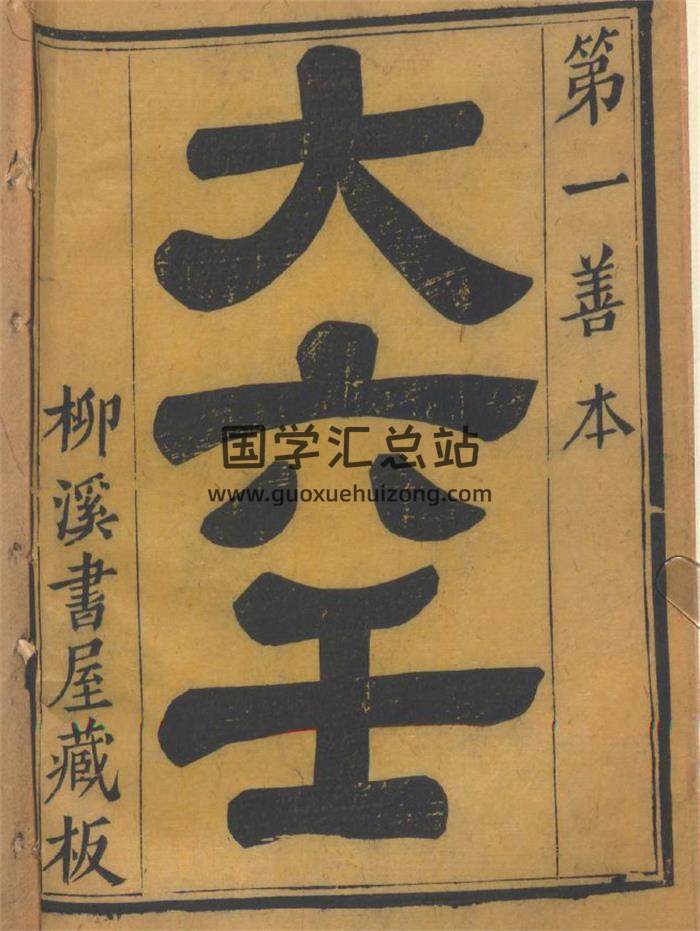 第一善本
大六壬
柳溪書屋藏板
国学汇总站
www.guoxuehuizong.com